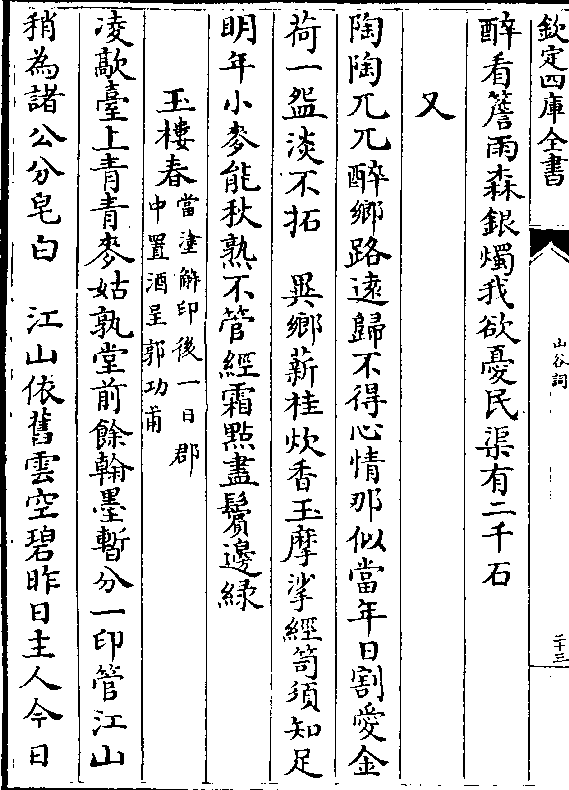 欽定四庫全書
山谷詞
二十三
醉看簷雨森銀燭我欲憂民渠有二千石
又
陶陶兀兀醉鄉路遠歸不得心情那似當年日割愛金
荷一盌淡不拓　異鄉薪桂炊香玉摩挲經笥須知足
明年小麥能秋熟不管經霜點盡鬢邊緑
玉樓春
當塗解印後一日郡
中置酒呈郭功甫
凌歊臺上青青麥姑孰堂前餘翰墨暫分一印管江山
稍為諸公分皂白　江山依舊雲空碧昨日主人今日